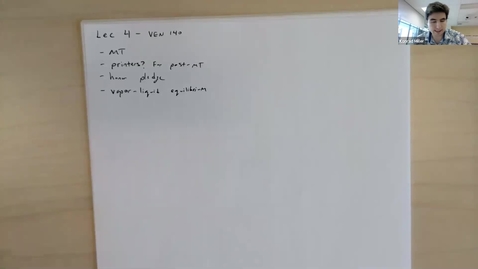 Lec 4 - VEN 140
- MT
- printers? for post-MT
- honor pledge
- vapor-liquid equilibrium